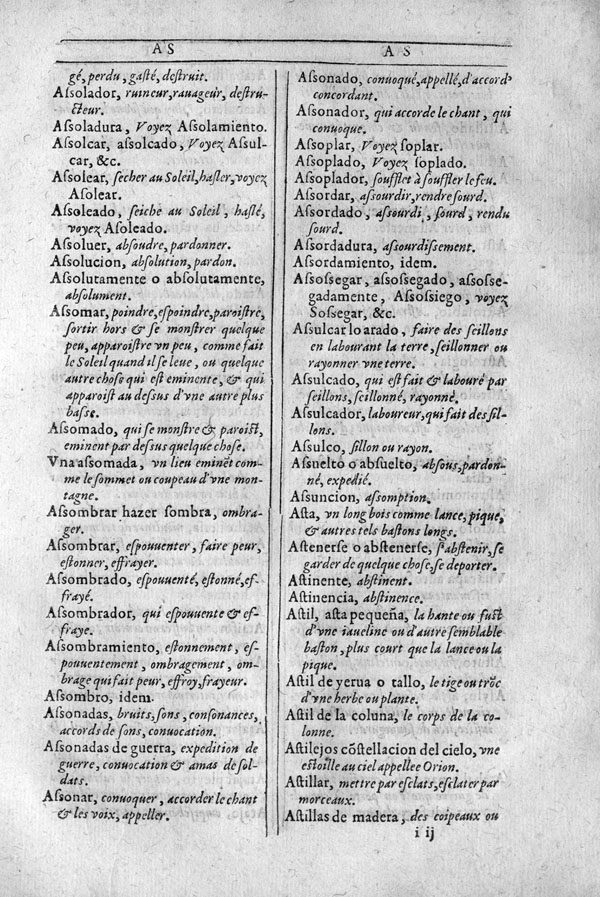 AS
AS
gé, perdu, gaſté, deſtruit.
Aſſolador, ruineur, rauageur, deſtru-
cteur.
Aſſoladura, Voyez Aſſolamiento.
Aſſolcar, aſſolcado, Voyez Aſſul-
car, &c.
Aſſolear, ſecher au Soleil, haſler, voyez
Aſolear.
Aſſoleado, ſeiche au Soleil, haſlé,
voyez Aſoleado.
Aſſoluer, abſoudre, pardonner.
Aſſolucion, abſolution, pardon.
Aſſolutamente o abſolutamente,
abſolument.
Aſſomar, poindre, eſpoindre, paroiſtre,
ſortir hors & ſe monſtrer quelque
peu, apparoiſtre vn peu, comme fait
le Soleil quand il ſe leue, ou quelque
autre choſe qui est eminente, & qui
apparoiſt au deſſus d'vne autre plus
baſſe.
Aſſomado, qui ſe monſtre & paroiſt,
eminent par deſſus quelque choſe.
Vna aſſomada, vn lieu eminēt com-
me le ſommet ou coupeau d'vne mon-
tagne.
Aſſombrar hazer ſombra, ombra-
ger.
Aſſombrar, eſpouuenter, faire peur,
eſtonner, effrayer.
Aſſombrado, eſpouuenté, eſtonné, ef-
frayé.
Aſſombrador, qui eſpouuente & ef-
fraye.
Aſſombramiento, eſtonnement, eſ-
pouuentement, ombragement, om-
brage qui fait peur, effroy, frayeur.
Aſſombro, idem.
Aſſonadas, bruits, ſons, conſonances,
accords de ſons, conuocation.
Aſſonadas de guerra, expedition de
guerre, conuocation & amas de ſol-
dats.
Aſſonar, conuoquer, accorder le chant
& les voix, appeller.
Aſſonado, conuoqué, appellé, d'accord,
concordant.
Aſſonador, qui accorde le chant, qui
conuoque.
Aſſoplar, Voyez ſoplar.
Aſſoplado, Voyez ſoplado.
Aſſoplador, ſoufflet à ſouffler le feu.
Aſſordar, aſſourdir, rendre ſourd.
Aſſordado, aſſourdi, ſourd, rendu
ſourd.
Aſſordadura, aſſourdiſſement.
Aſſordamiento, idem.
Aſſoſſegar, aſſoſſegado, aſſoſſe-
gadamente, Aſſoſſiego, voyez
Soſſegar, &c.
Aſſulcar lo arado, faire des ſeillons
en labourant la terre, ſeillonner ou
rayonner vne terre.
Aſſulcado, qui eſt fait & labouré par
ſeillons, ſeillonné, rayonné.
Aſſulcador, laboureur, qui fait des ſil-
lons.
Aſſulco, ſillon ou rayon.
Aſſuelto o abſuelto, abſous, pardon-
né, expedié.
Aſſuncion, aſſomption.
Aſta, vn long bois comme lance, pique,
& autres tels baſtons longs.
Aſtenerſe o abſtenerſe, s'abſtenir, ſe
garder de quelque choſe, ſe deporter.
Aſtinente, abſtinent.
Aſtinencia, abſtinence.
Aſtil, aſta pequeña, la hante ou fuſt
d'vne iaueline ou d'autre ſemblable
baſton, plus court que la lance ou la
pique.
Aſtil de yerua o tallo, le tige ou trõc
d'vne herbe ou plante.
Aſtil de la coluna, le corps de la co-
lonne.
Aſtilejos cõſtellacion del cielo, vne
eſtoille au ciel appellee Orion.
Aſtillar, mettre par eſclats, eſclater par
morceaux.
Aſtillas de madera, des coipeaux ou
i ij